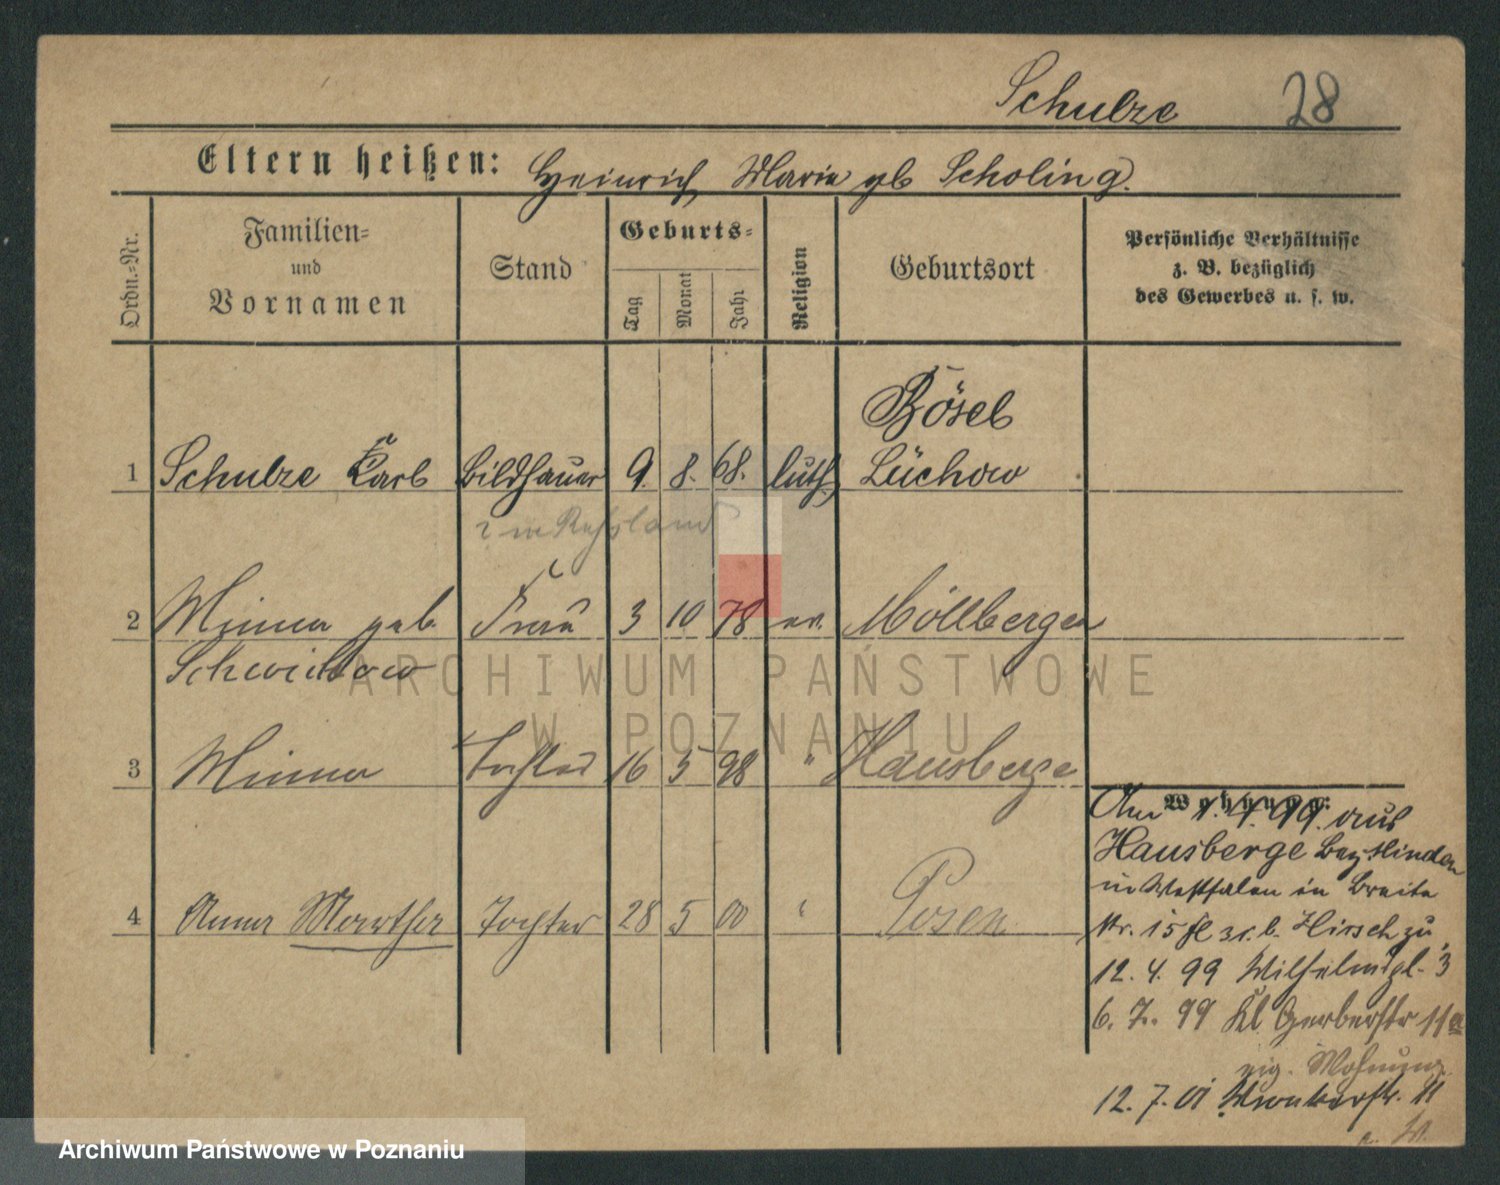 Schulze 28
Eltern heißen: Heinrich, Marie gb Scholing.
Ordn.=Nr.
Familien=
und
Vornamen
Stand
Geburts=
Tag
Monat
Jahr
Religion
Geburtsort
Persönliche Verhältnisse
z. B. bezüglich
des Gewerbes u. s. w.
Bösel
1 Schulze Karl Bildhauer 9. 8. 68. luth. Lüchow
in Russland
2 Minna geb. Frau 3 10 78 ev. Möllbergen
3 Minna Tochter 16 5 98 " Hausberge
4 Anna Martha Tochter 28 5 00 " Posen
Wohnung:
Am 1. 4. 99. aus
Hausberge Bez Minden
in Westfalen in Breite
str. 15 b. Hirsch zu
12. 4. 99 Wilhelmspl. 3
6. 7. 99 Kl Gerberstr 11a
eig. Wohnung
12. 7. 01 Wronkerstr. 11
ARCHIWUM PAŃSTWOWE
W POZNANIU
Archiwum Państwowe w Poznaniu